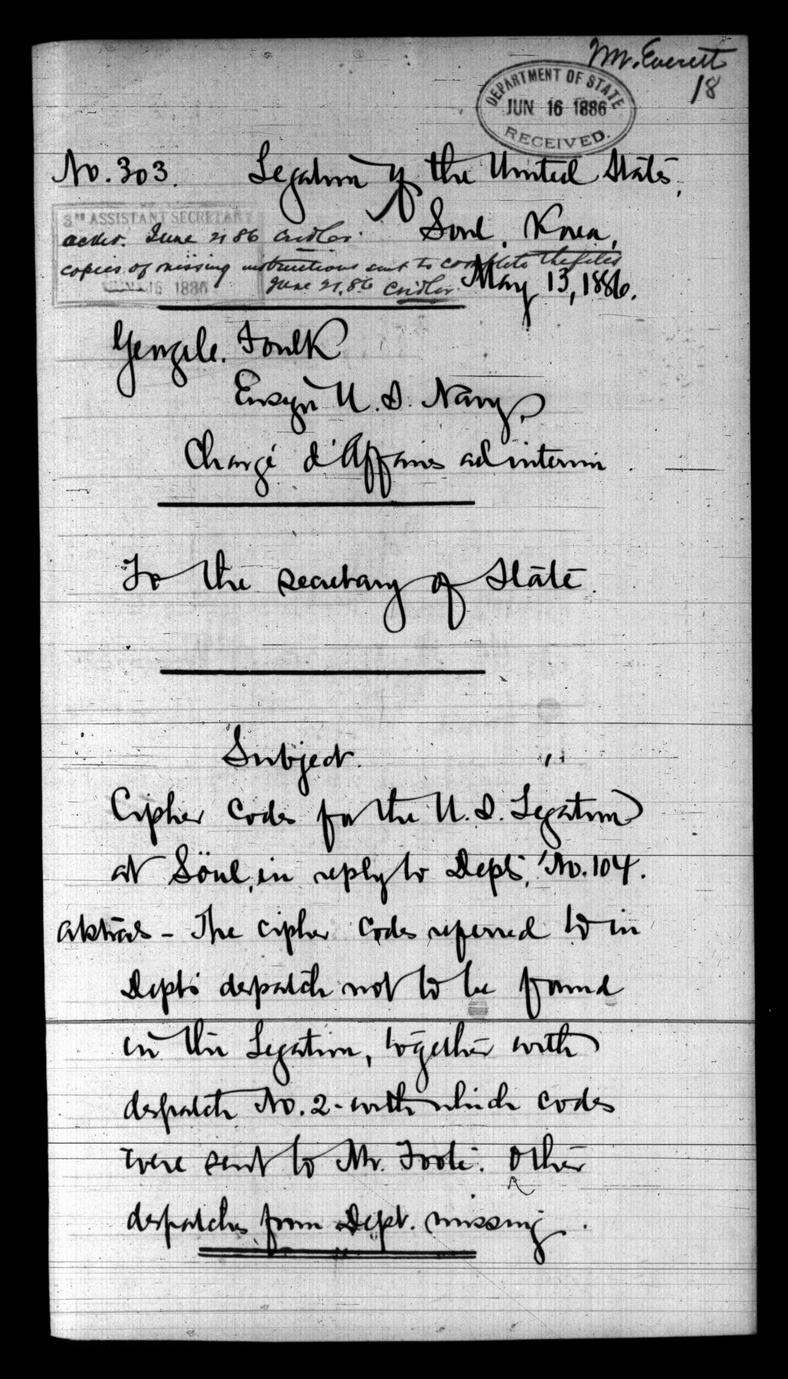 Mr. Everett
18
DEPARTMENT OF STATE
JUN 16 1886
RECEIVED.
No. 303. Legation of the United States,
Söul, Korea,
3RD ASSISTANT SECRETARY
ackd. June 21 86 Cridler.
copies of missing instructions sent to complete the files
June 21, 86 Cridler
JUN 16 1886
May 13, 1886.
George C. Foulk
Ensign U.S. Navy,
Chargé d'Affaires ad interim
To the Secretary of State.
Subject.
Cipher Codes for the U.S. Legation
at Söul, in reply to Dept's, No. 104.
Abstract - The cipher codes referred to in
Dept's despatch not to be found
in this Legation, together with
despatch No. 2 - with which codes
were sent to Mr. Foote. Other
despatches from Dept. missing.